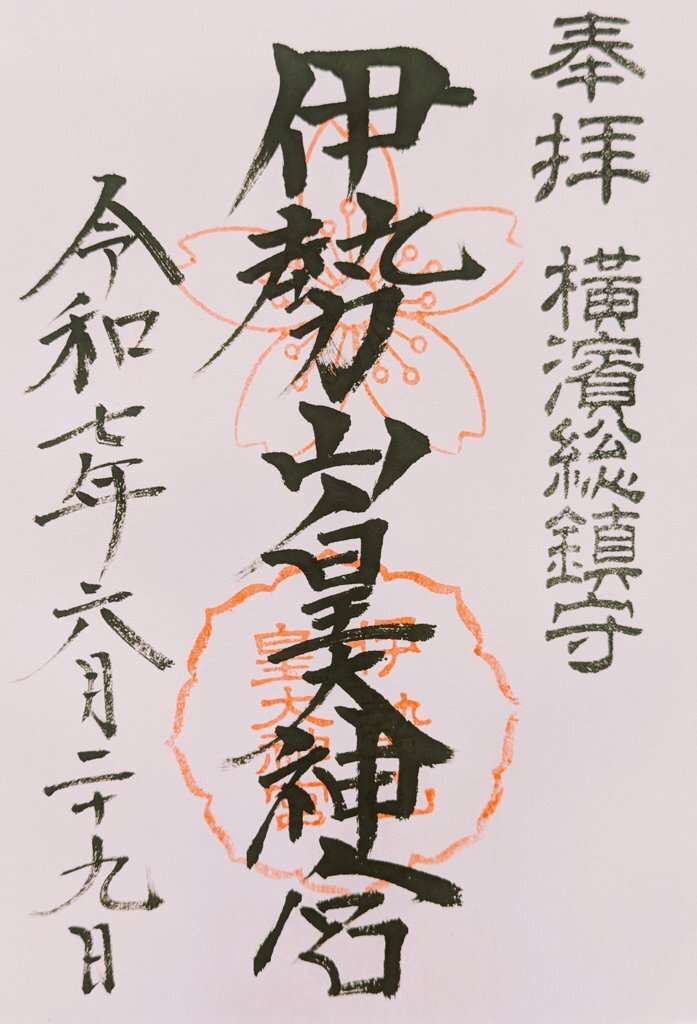 奉拝 横濱総鎮守
伊勢山皇大神宮
伊勢山
皇大神宮
令和七年六月二十九日